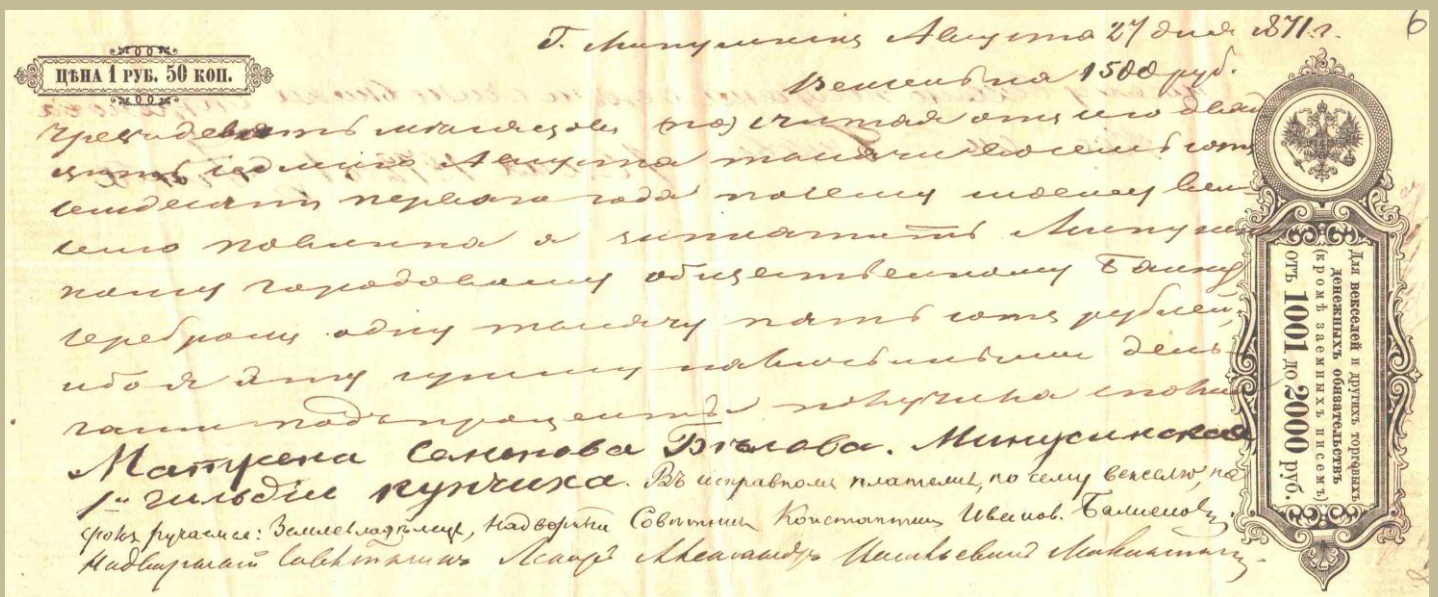 Г. Минусинскъ Августа 27 дня 1871 г.
6
ЦѢНА 1 РУБ. 50 КОП.
Вексель на 1500 руб.
Чрезъ девять мѣсяцовъ считая отъ сего двад
цать седмаго Августа тысяча восемь сотъ
семдесятъ перваго года по сему моему век
селю повинна я заплатить Минусин
скому городовому общественному Банку
серебромъ одну тысячу пять сотъ рублей,
ибо я эту сумму наличными день
гами подъ проценты получила сполна
Матрена Семенова Бѣлова. Минусинская
1й гильдіи купчиха. Въ исправномъ платежѣ, по сему векселю, на
срокъ ручаемся: Надворный Совѣтникъ Константинъ Ивановъ
Надворный Совѣтникъ Александръ
Для векселей и другихъ торговыхъ
денежныхъ обязательствъ
(кромѣ заемныхъ писемъ)
отъ 1001 до 2000 руб.